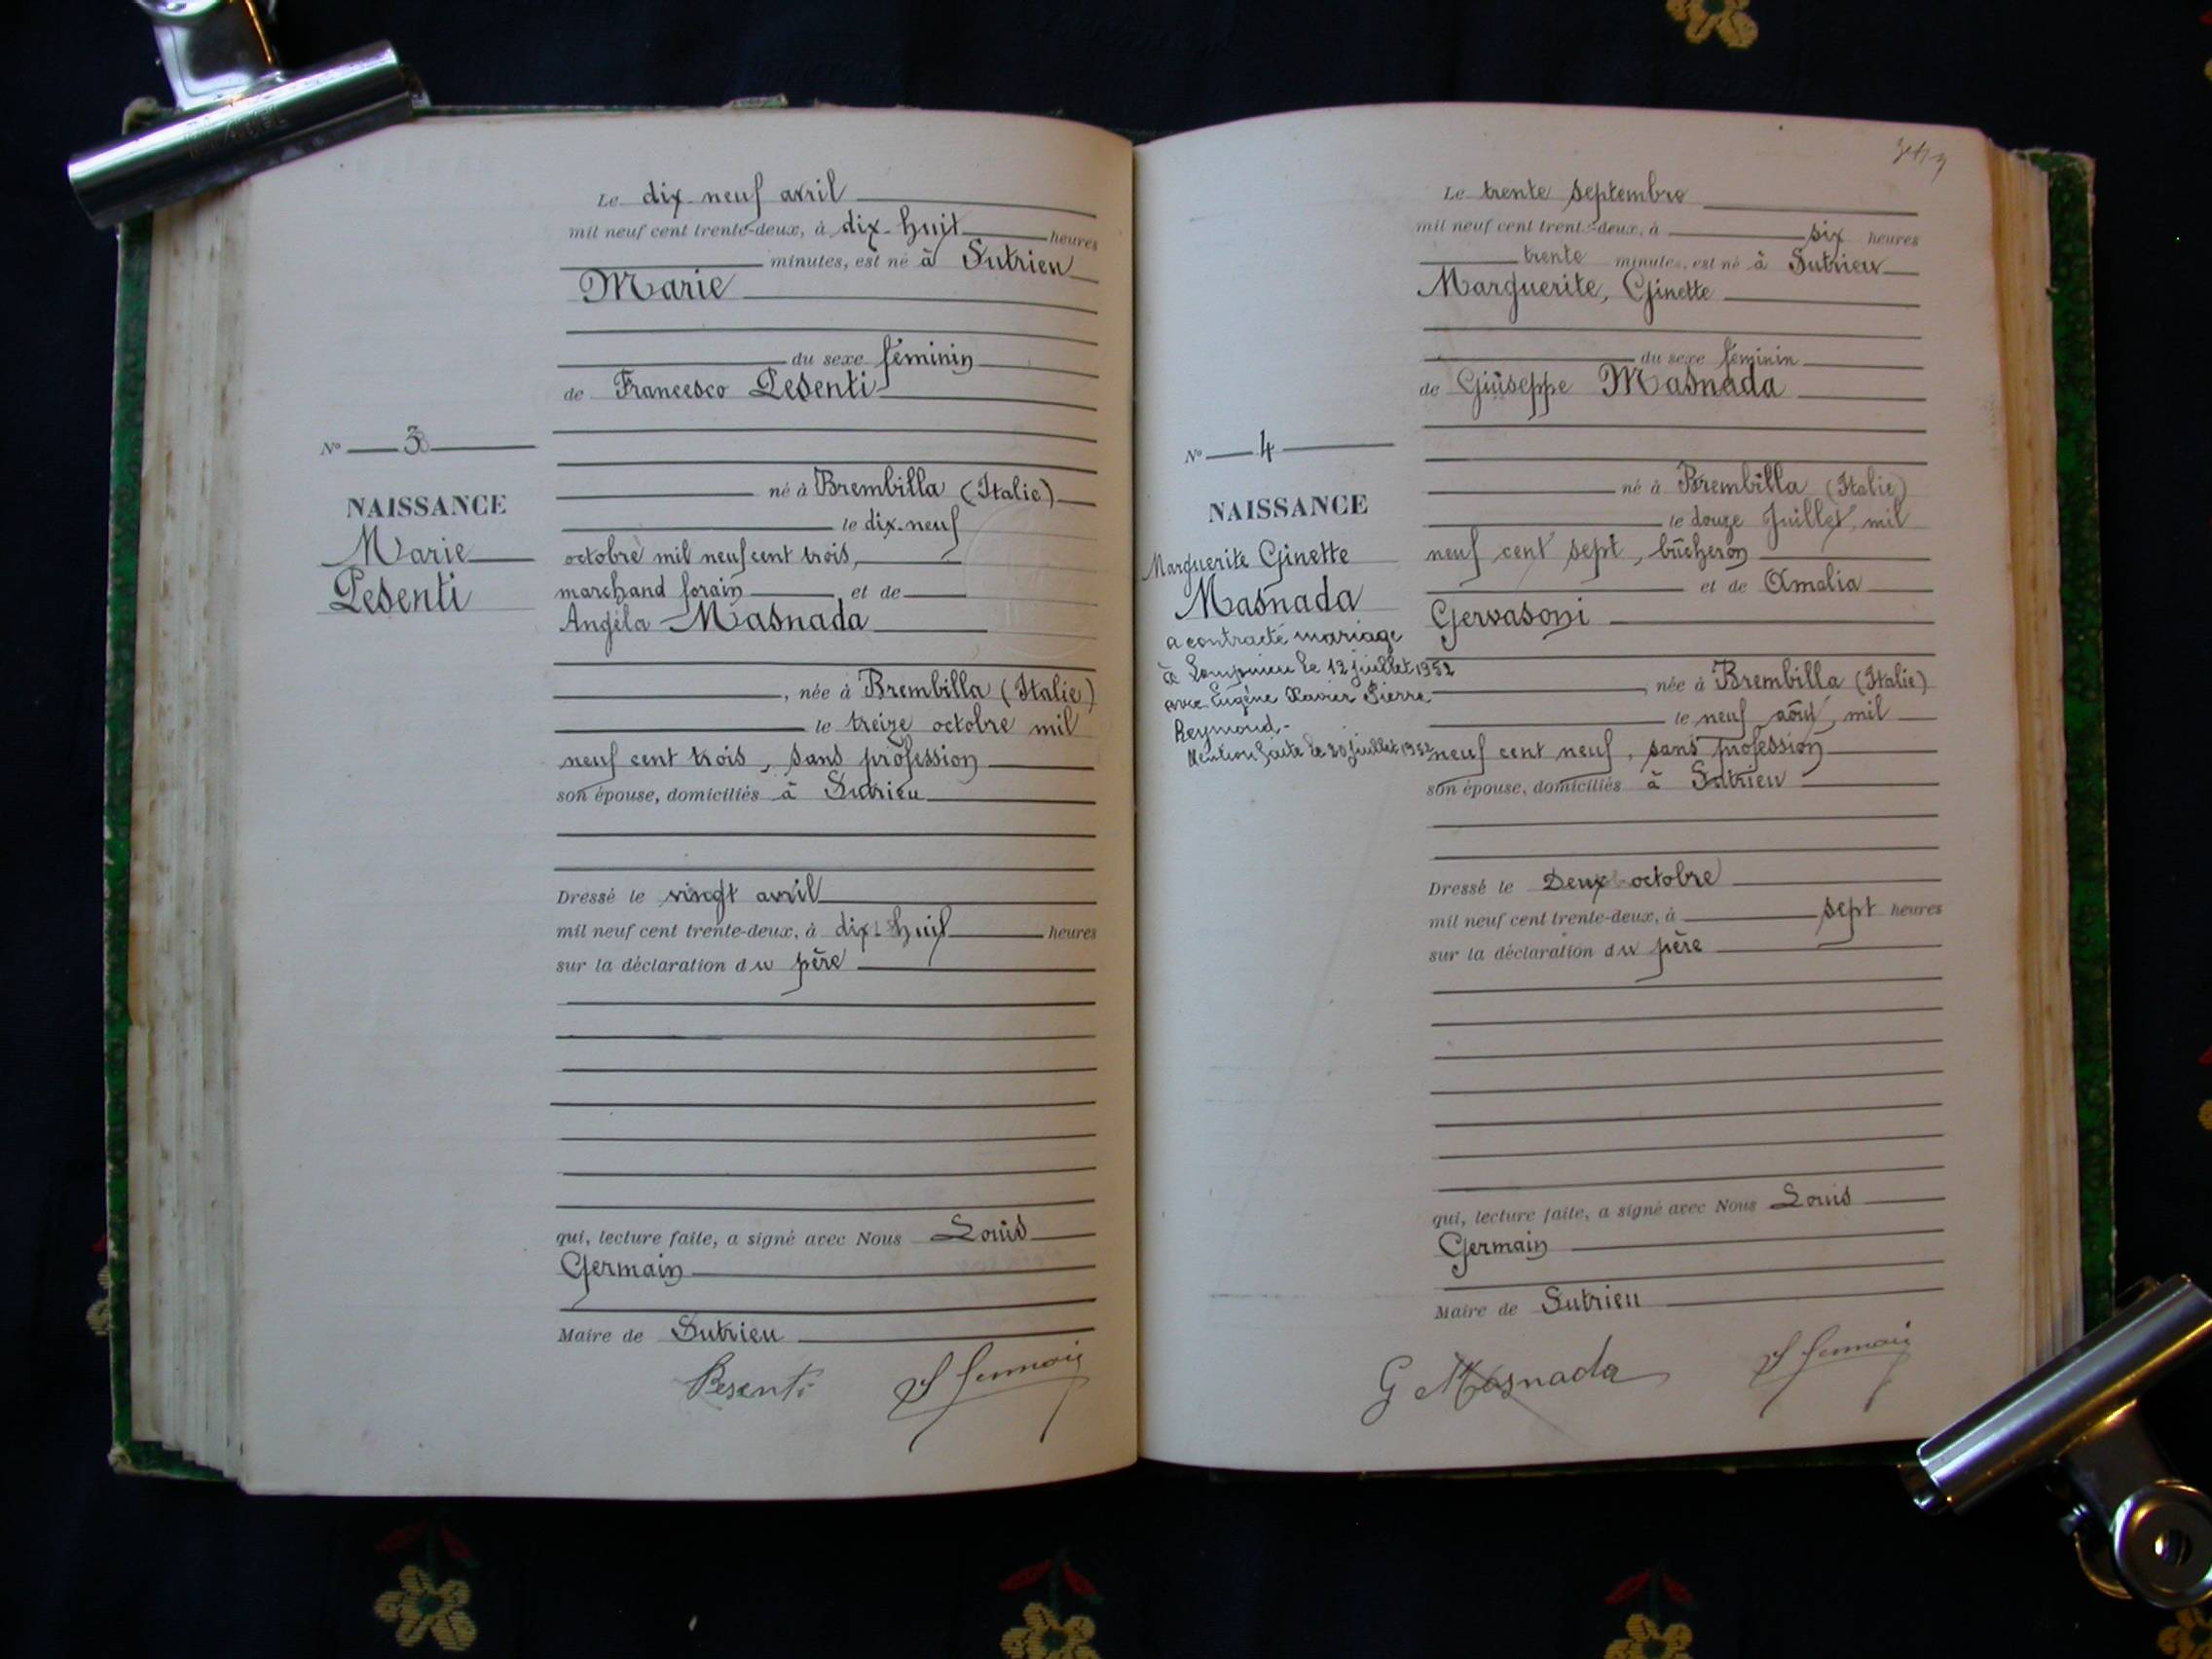 Le dix-neuf avril
mil neuf cent trente-deux, à dix-huit heures
minutes, est né à Sutrieu
Marie
du sexe féminin
de Francesco Pesenti
N° 3
né à Brembilla (Italie)
NAISSANCE
le dix-neuf
Marie
octobre mil neuf cent trois,
Pesenti
marchand forain et de
Angéla Masnada
, née à Brembilla (Italie)
le treize octobre mil
neuf cent trois, sans profession
son épouse, domiciliés à Sutrieu
Dressé le vingt avril
mil neuf cent trente-deux, à dix-huit heures
sur la déclaration du père
qui, lecture faite, a signé avec Nous Louis
Germain
Maire de Sutrieu
Pesenti
L Germain
Le trente septembre
mil neuf cent trente-deux, à six heures
trente minutes, est né à Sutrieu
Marguerite, Ginette
du sexe féminin
de Giuseppe Masnada
N° 4
né à Brembilla (Italie)
NAISSANCE
le douze Juillet mil
Marguerite Ginette
neuf cent sept, bûcheron
Masnada
et de Amalia
Gervasoni
a contracté mariage
à le 12 juillet 1952
avec Eugène Xavier Pierre
Reymond.-
Mention faite le 20 juillet 1952
, née à Brembilla (Italie)
le neuf août, mil
neuf cent neuf, sans profession
son épouse, domiciliés à Sutrieu
Dressé le Deux octobre
mil neuf cent trente-deux, à sept heures
sur la déclaration du père
qui, lecture faite, a signé avec Nous Louis
Germain
Maire de Sutrieu
G Masnada
L Germain